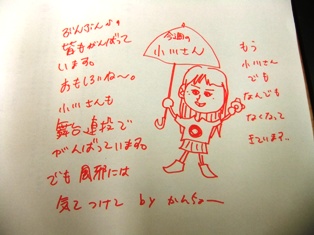 皆もがんばって
います。
おもしろいね〜。
小川さんも
舞台連投で
がんばっています。
でも風邪には
気をつけて by かんちょー
今週の
小川さん
もう
小川さん
でも
なんでも
なくなって
きています…